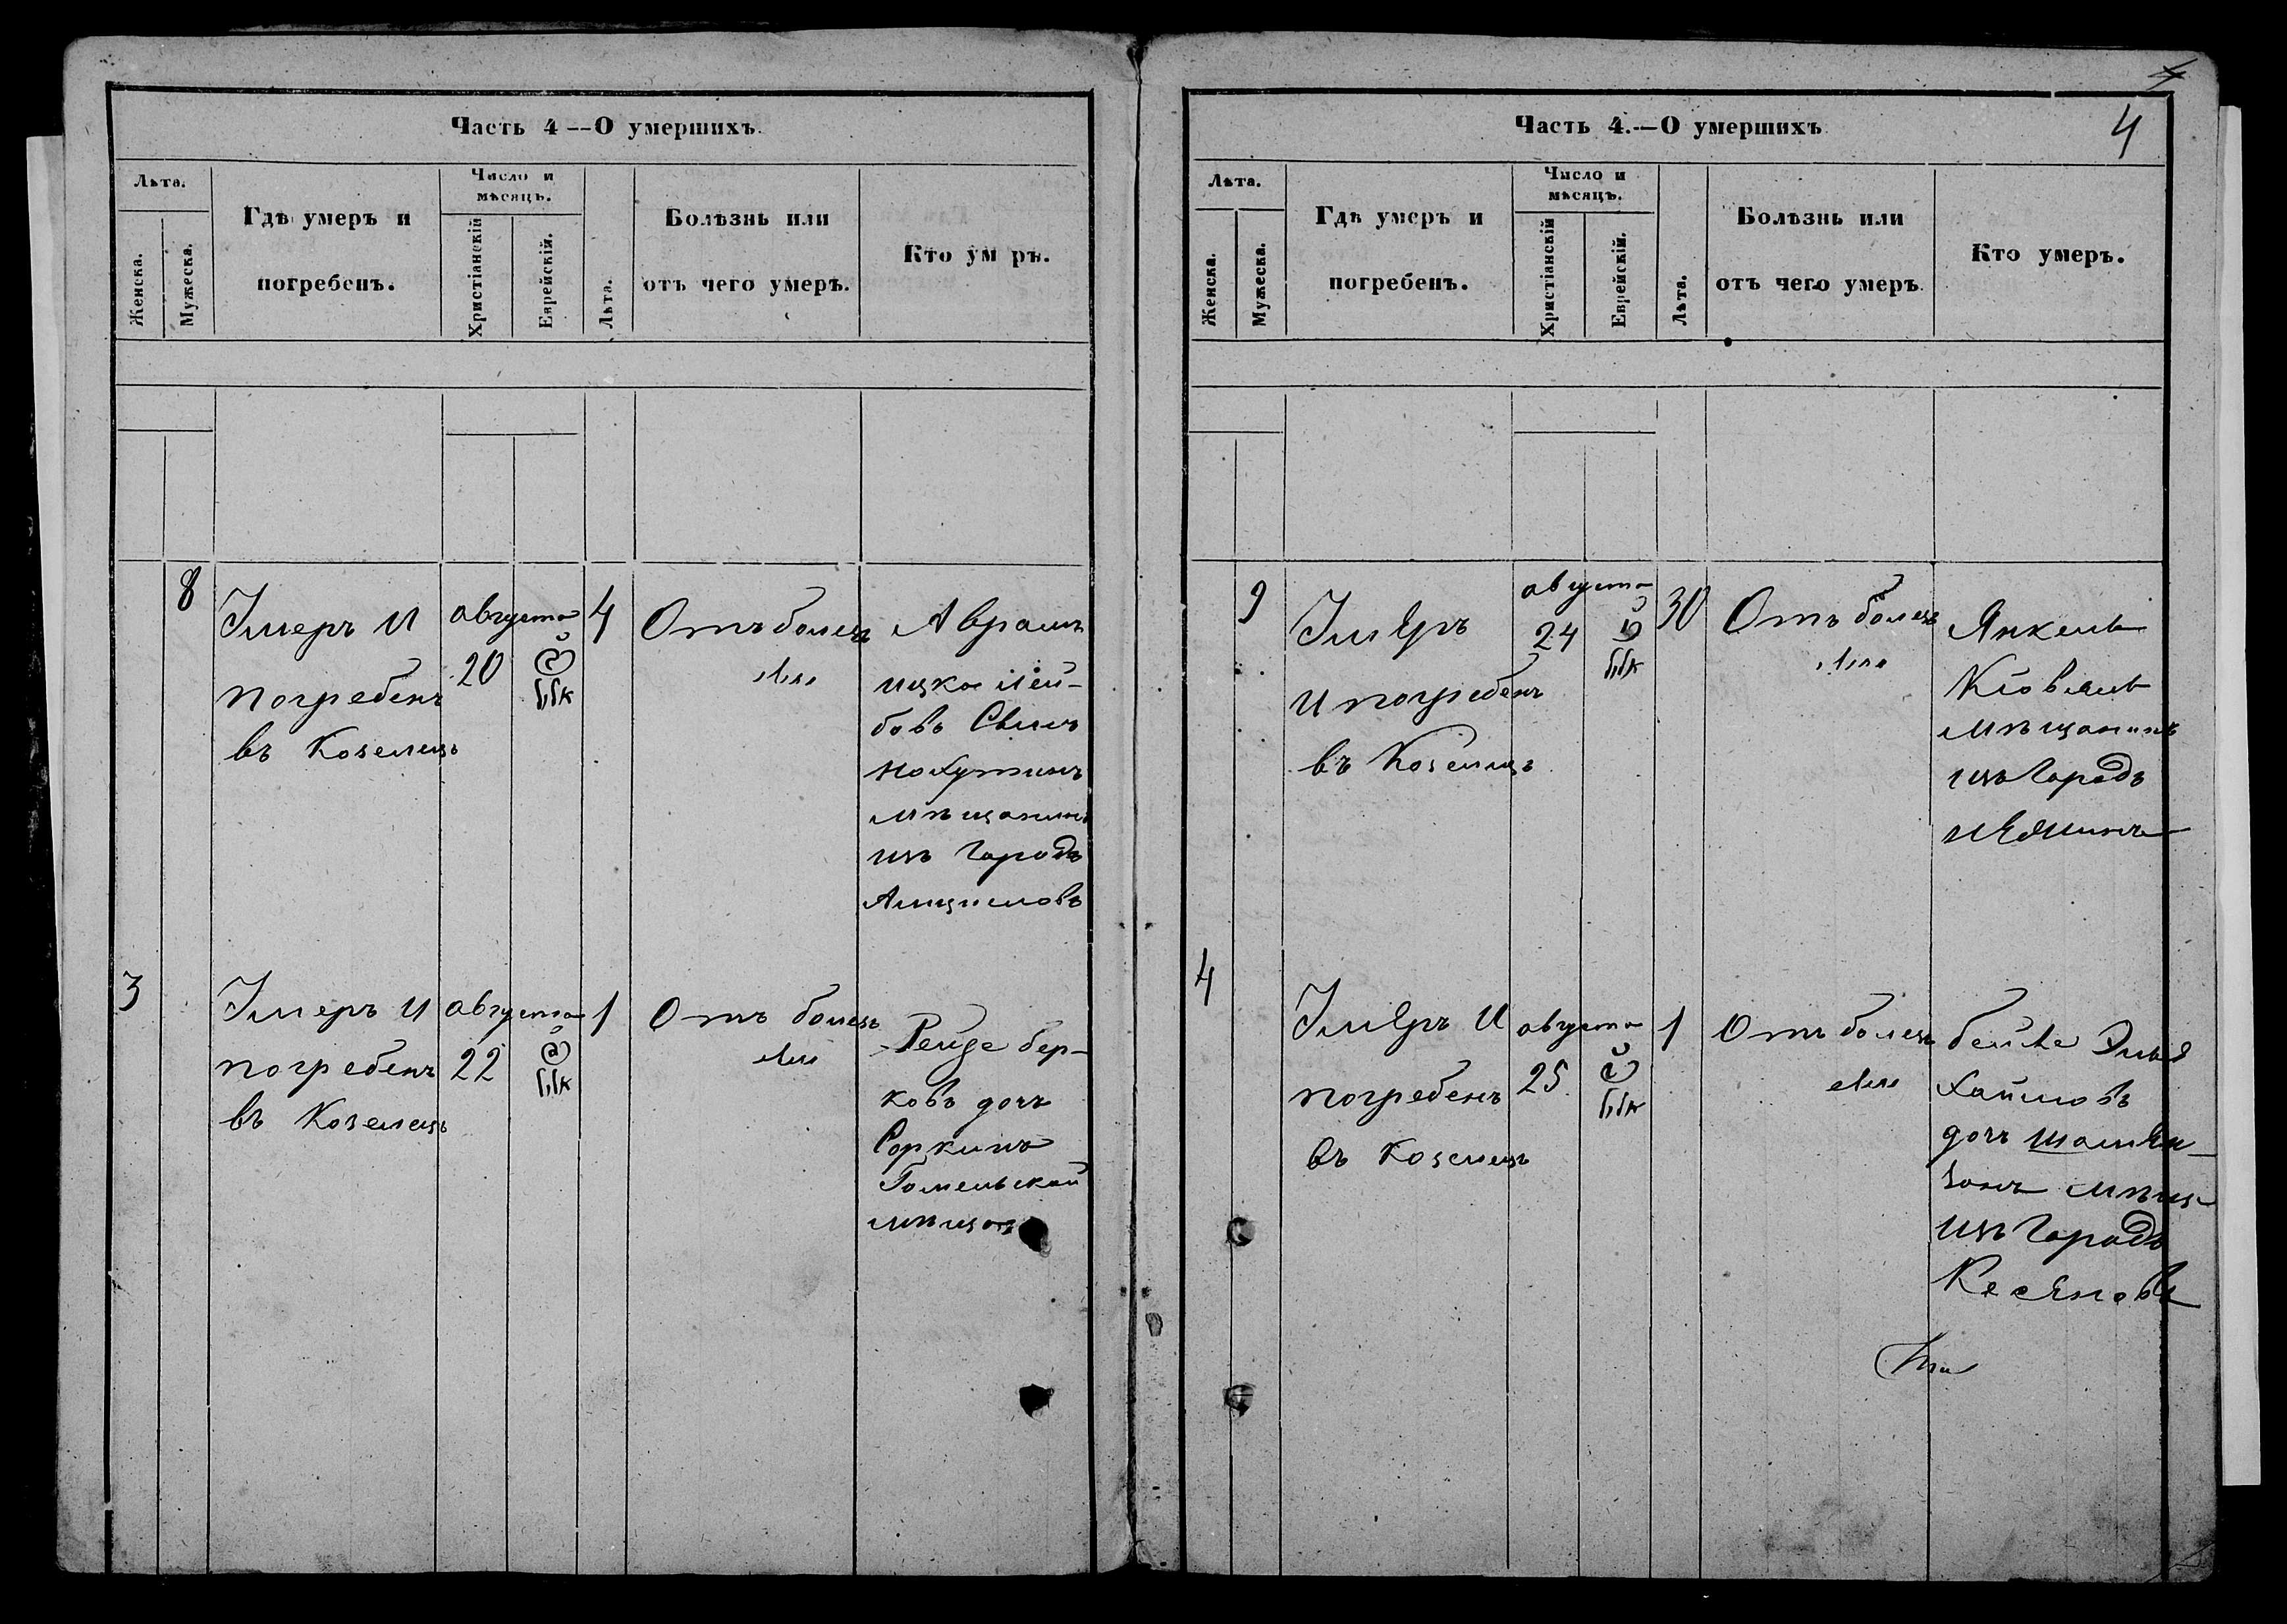 Часть 4—О умершихъ.
Лѣта.
Женска.
Мужеска.
Гдѣ умеръ и
погребенъ.
Число и
мѣсяцъ.
Христіанскій
Еврейскій.
Лѣта.
Болѣзнь или
отъ чего умеръ.
Кто ум ръ.
8
Умеръ и
погребенъ
въ Козелецъ
августа
20
אב
4
Отъ болез
Аврамъ
ицко Лей-
бовъ
мѣщанинъ
изъ Городъ
3
Умеръ и
погребенъ
въ Козелецъ
августа
22
אב
1
Отъ болезъ
Рейзе бер-
ковъ дочъ
Соркинъ
Гомельской
мѣщан
4
Часть 4.—О умершихъ
Лѣта.
Женска.
Мужеска.
Гдѣ умеръ и
погребенъ.
Число и
мѣсяцъ.
Христіанскій
Еврейскій.
Лѣта.
Болѣзнь или
отъ чего умеръ
Кто умеръ.
9
Умеръ
и погребенъ
въ Козелецъ
августа
24
אב
30
Отъ болез
Янкель
мѣщанинъ
изъ Городъ
4
Умеръ и
погребенъ
въ Козелецъ
августа
25
אב
1
Отъ болезъ
бейле
Хаимовъ
дочъ
мѣщ
изъ Городъ